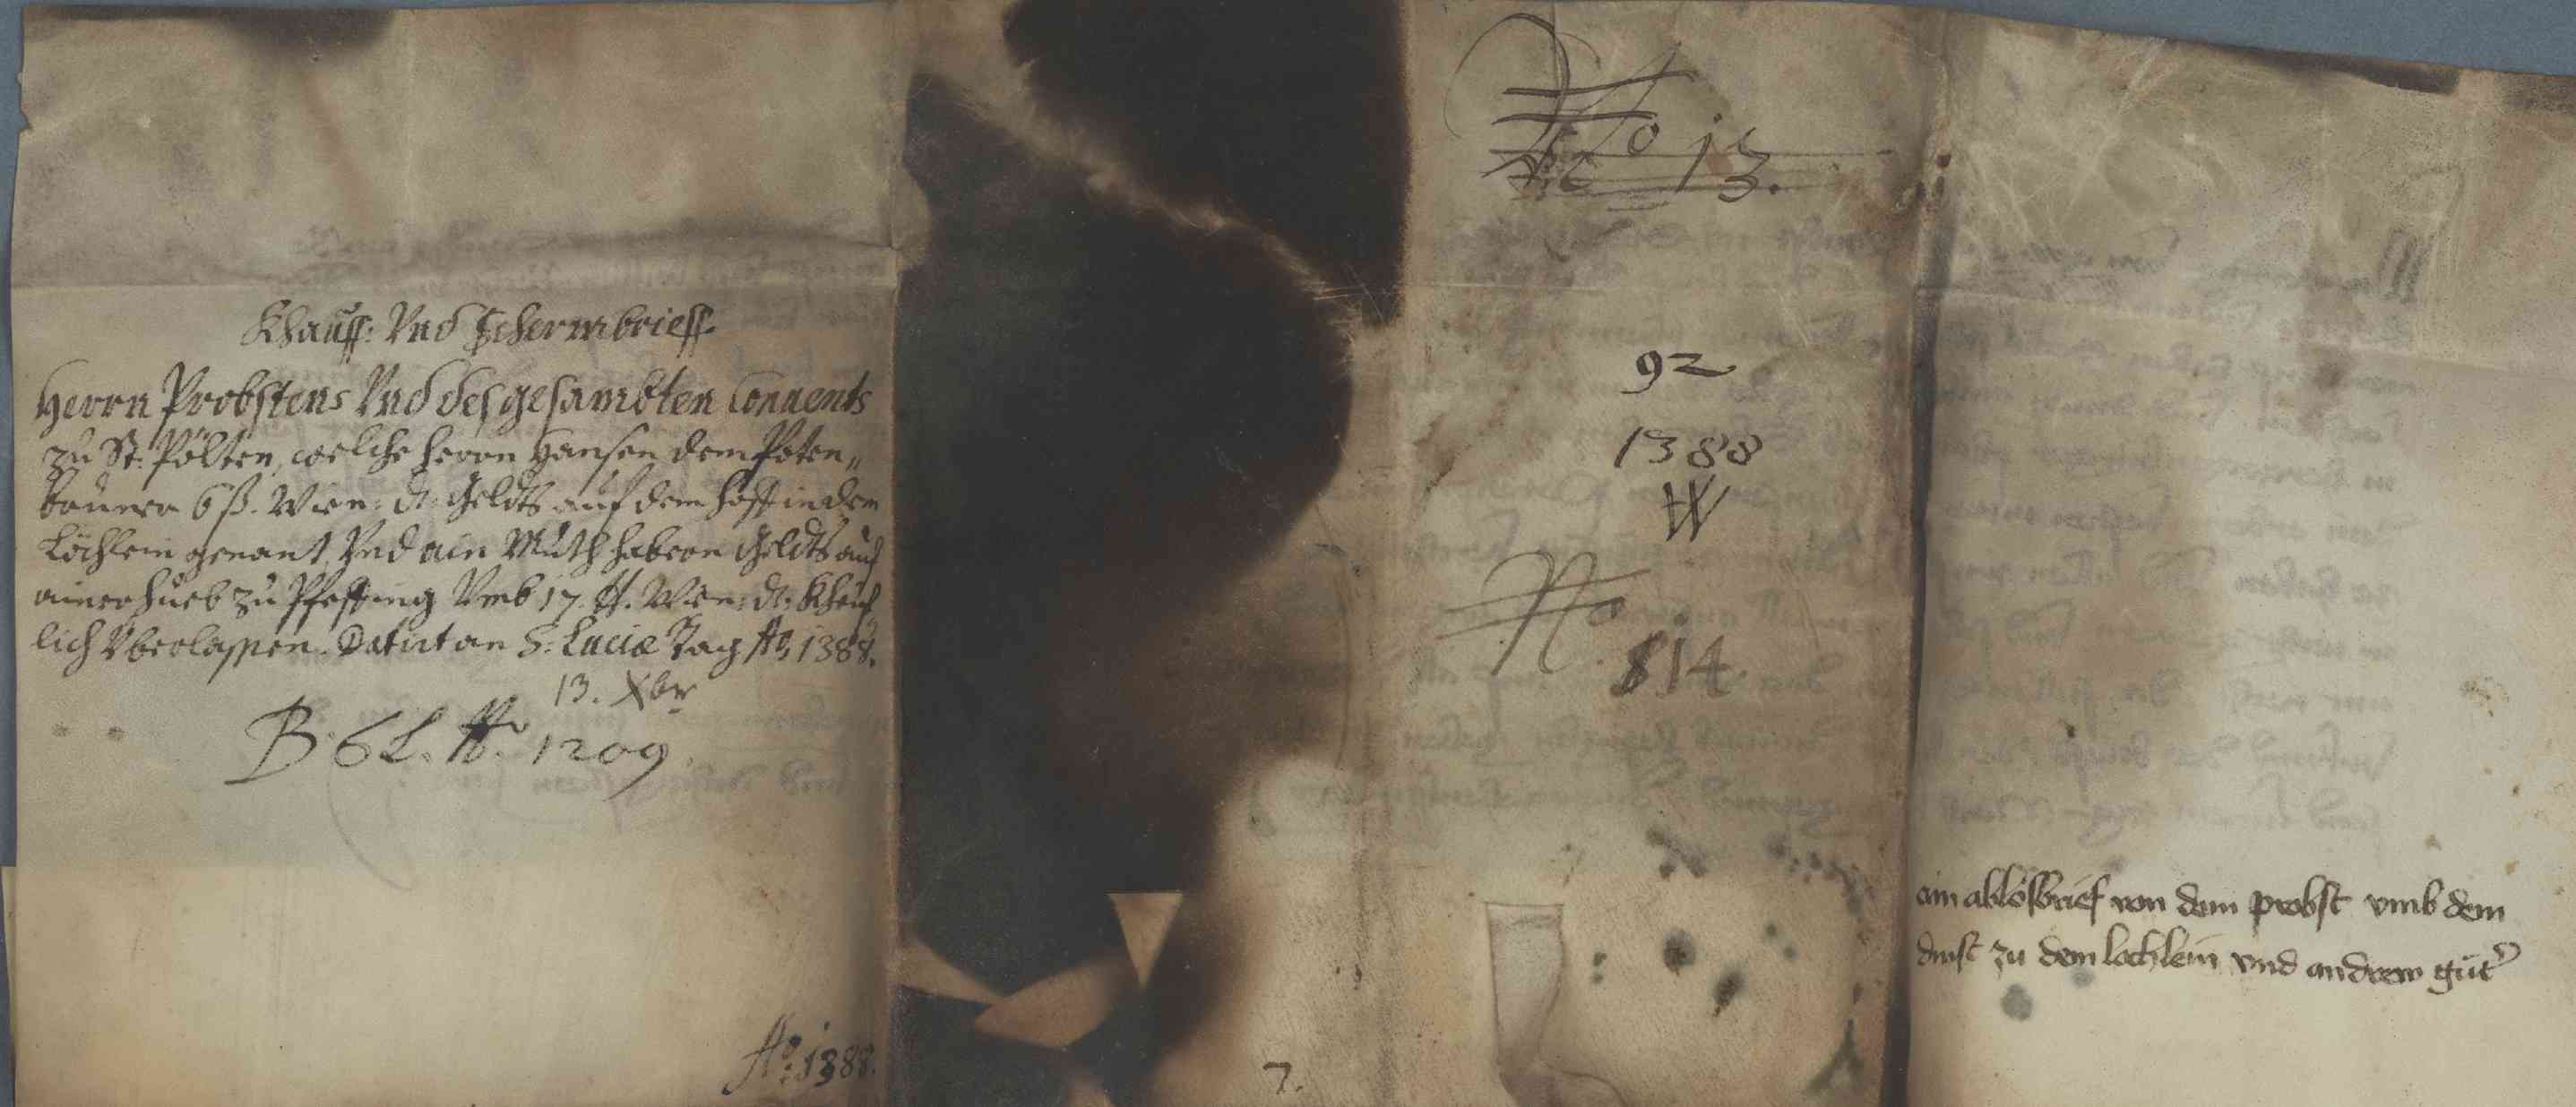 Khauff: Vnd Schermbrieff.
Herrn Probstens Vnd des gesambten Conuents
zu St: Pölten, welche herrn Hansen dem Poten„
brunner 6 ß. Wien: d: Geldts auf dem hoff in dem
Löchlein genant, Vnd ain Muth habern Geldts auf
ainer hueb zu Pfaffing Vmb 17 ℔. Wien: d: Kheuf„
lich Vberlassen. Datirt an S: Luciæ Tag Aō 1388.
13. Xbr
B. 6 L. N. 1209.
Aō: 1388.
No 13.
92
1388
W
No
814
7.
ain ablösbrief von dem probst vmb den
dinst zu dem lochlein vnd andrew güt